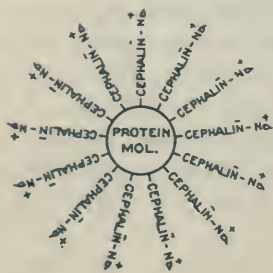 PROTEIN
MOL.
CEPHALIN⁻-Na⁺
CEPHALIN⁻-Na⁺
CEPHALIN⁻-Na⁺
CEPHALIN⁻-Na⁺
CEPHALIN⁻-Na⁺
CEPHALIN⁻-Na⁺
CEPHALIN⁻-Na⁺
CEPHALIN⁻-Na⁺
CEPHALIN⁻-Na⁺
CEPHALIN⁻-Na⁺
CEPHALIN⁻-Na⁺
CEPHALIN⁻-Na⁺
CEPHALIN⁻-Na⁺